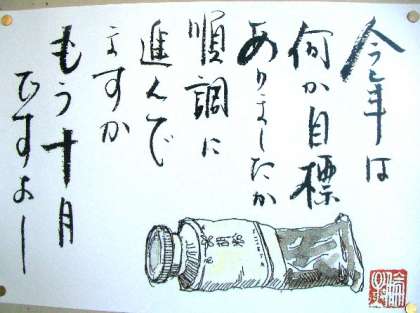 今年は
何か目標
ありましたか
順調に
進んで
ますか
もう十月
ですよー